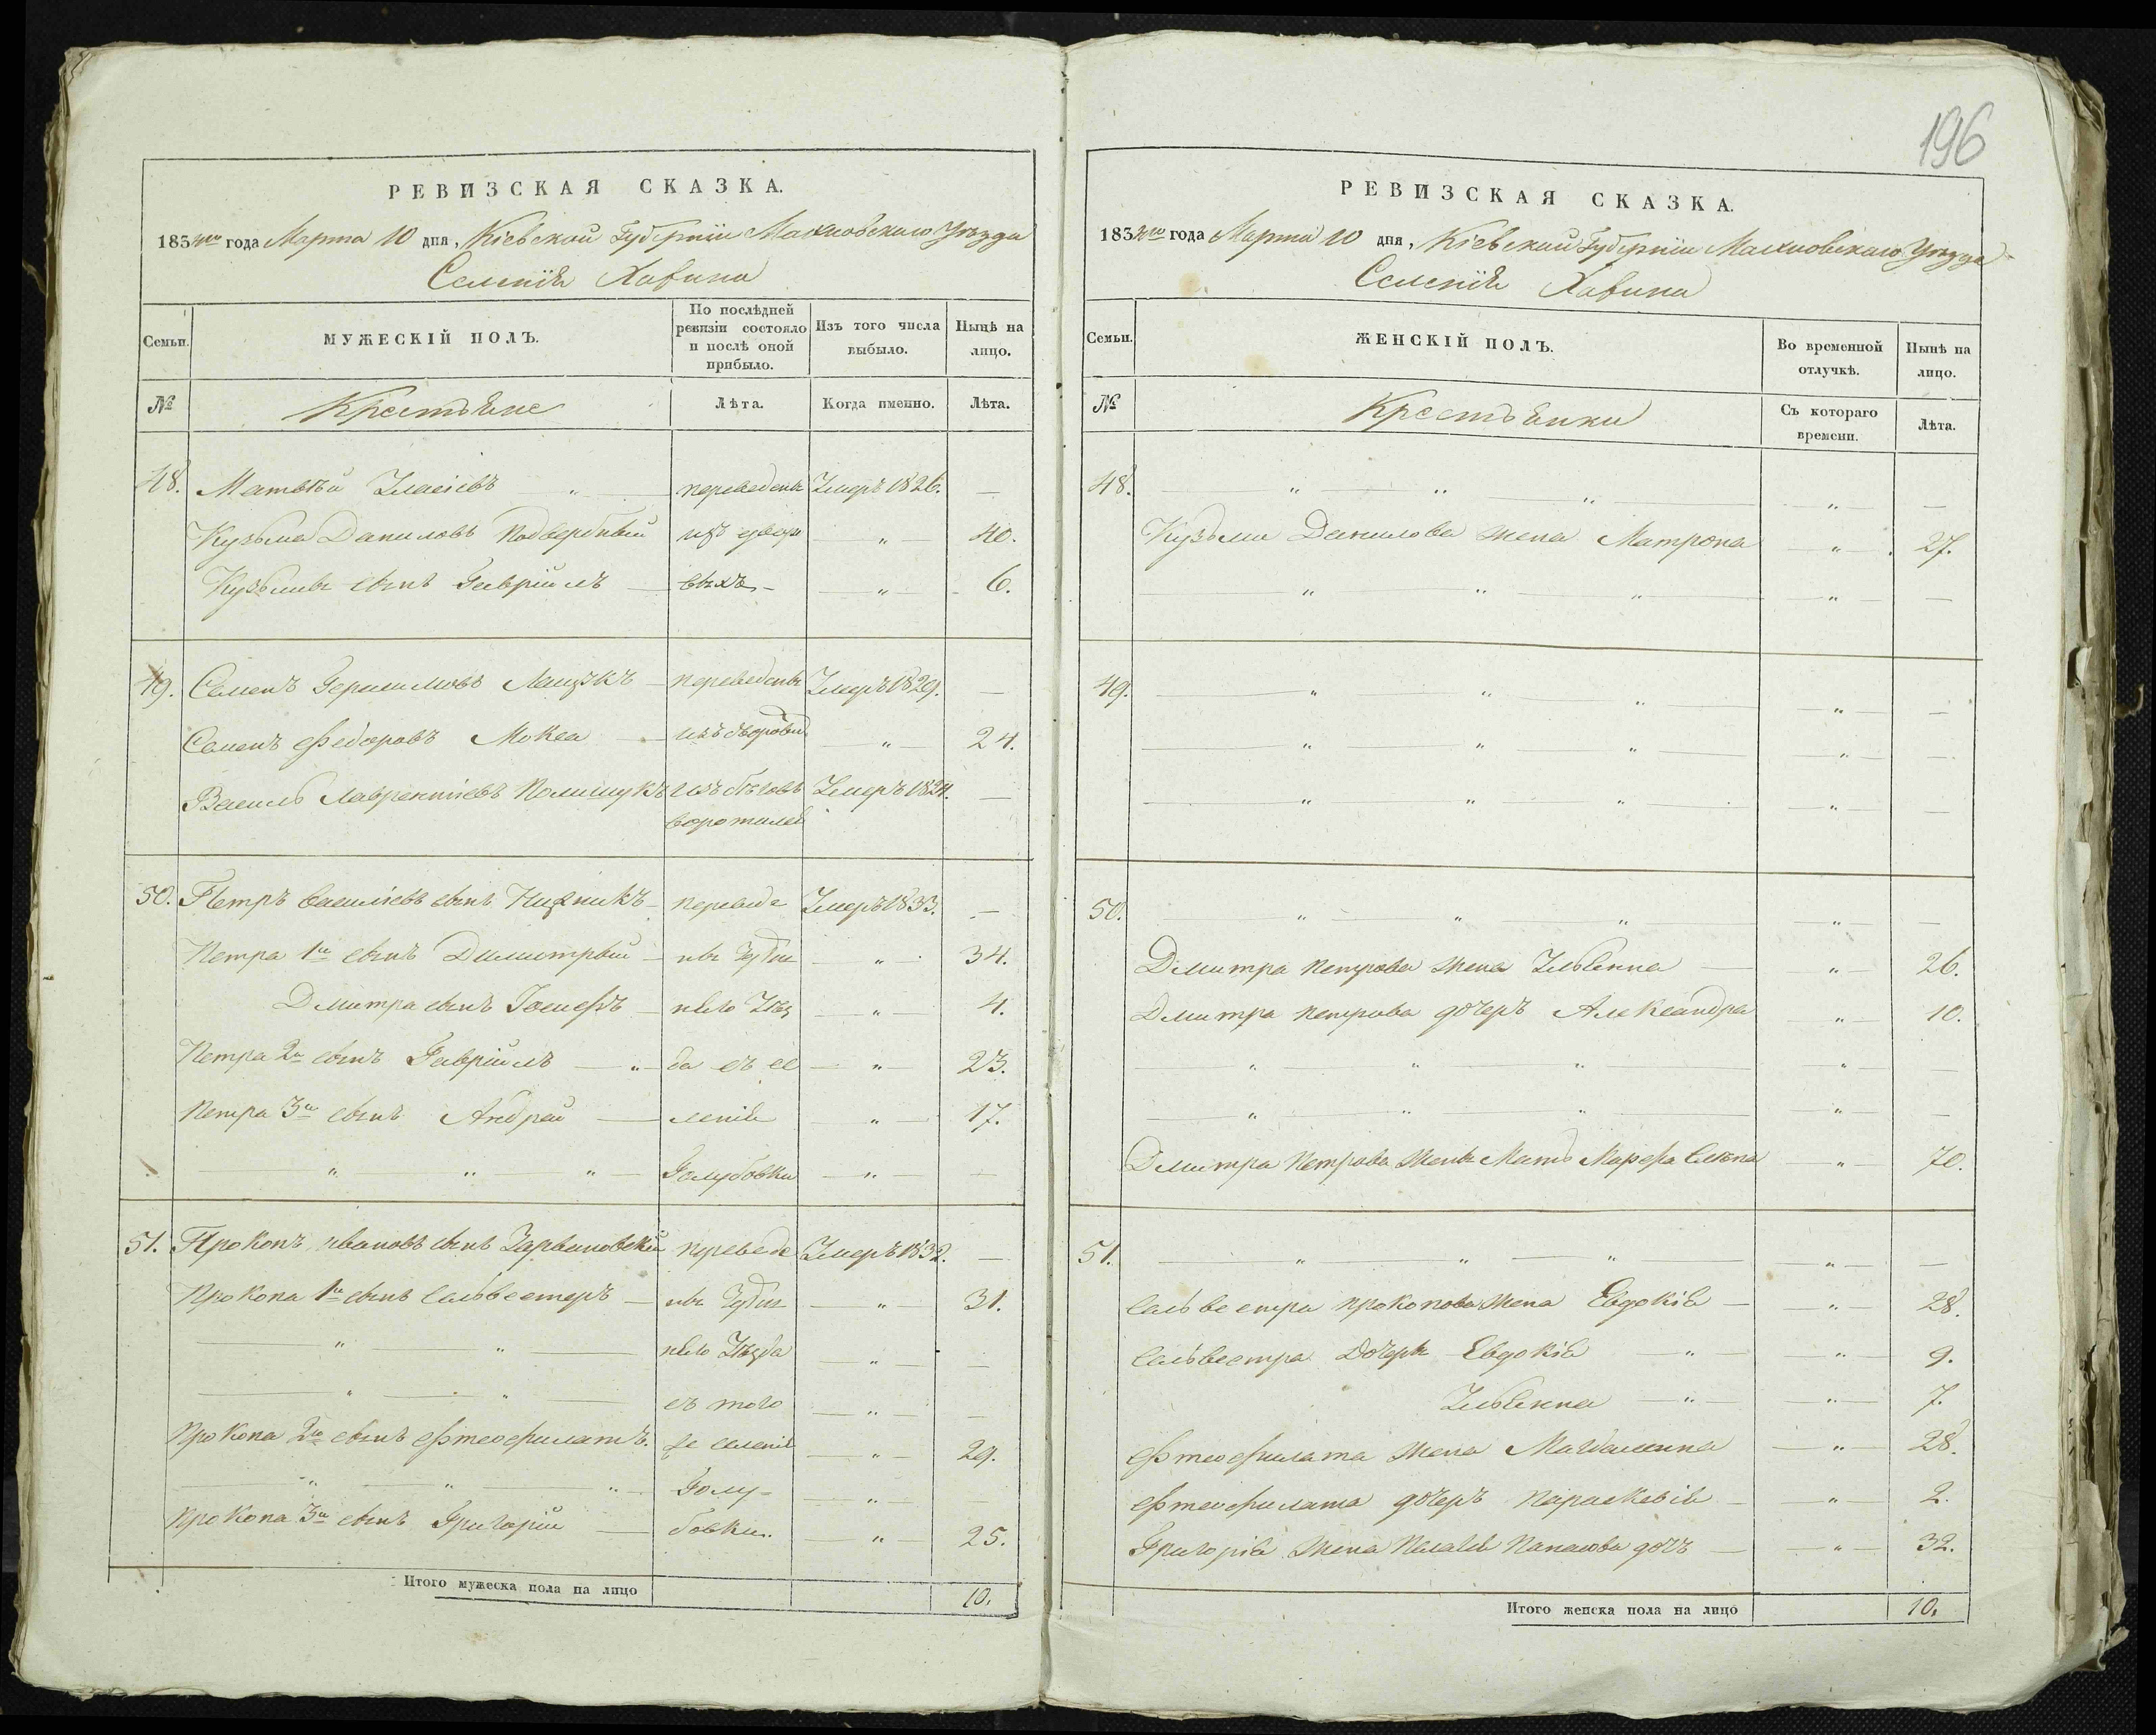 196
РЕВИЗСКАЯ СКАЗКА.
183 года Марта 10 дня, Кіевской Губерніи Махновскаго Уѣзда
Селенія Хавина
Семьи. МУЖЕСКІЙ ПОЛЪ. По послѣдней ревизіи состояло и послѣ оной прибыло. Изъ того числа выбыло. Нынѣ на лицо.
№ Крестьяне Лѣта. Когда именно. Лѣта.
48. Матвѣй переведены Умеръ 1826. —
Кузьма Даниловъ изъ „ 40.
Кузьмы сынъ Гавріилъ выхъ „ 6.
49. Семенъ Герасимовъ переведены Умеръ 1829. —
Семенъ Федоровъ изъ дворовы „ 24.
Василь Лаврентіевъ Полищукъ изъ бѣговъ Умеръ 1824. —
воротился
50. Петръ Васильевъ сынъ переведе Умеръ 1833. —
Петра 1й сынъ Димитрый ны „ 34.
Дмитра сынъ Іосифъ „ 4.
Петра 2й сынъ Гавріилъ — „ да съ се „ 23.
Петра 3й сынъ Андрей — ленія „ 17.
„ „ „ Голубовки „ —
51. Прокопъ Ивановъ сынъ переведе Умеръ 1832. —
Прокопа 1й сынъ Сальвестеръ — ны „ 31.
„ „ Уѣзда „ —
„ „ съ того „ —
Прокопа 2й сынъ Фтеофилатъ. же селенія „ 29.
„ „ „ Голу- „
Прокопа 3й сынъ Григорій — бовки. „ 25.
Итого мужеска пола на лицо 10.
РЕВИЗСКАЯ СКАЗКА.
183 года Марта 10 дня, Кіевской Губерніи Махновскаго Уѣзда
Селенія Хавина
Семьи. ЖЕНСКІЙ ПОЛЪ. Во временной отлучкѣ. Нынѣ на лицо.
№ Крестьянки Съ котораго времени. Лѣта.
48. „ „ „ „ —
Кузьмы Данилова жена Матрона „ 27.
„ „ „ „ —
49. „ „ „ „ —
„ „ „ „ —
„ „ „ „ —
50. „ „ „ „ —
Дмитра Петрова жена Ульянна „ 26.
Дмитра Петрова дочеръ Александра „ 10.
„ „ „ „ —
„ „ „ „ —
Дмитра Петрова жены Мать Марфа „ 70.
51. „ „ „ „ —
Сальвестра Прокопова жена Евдокія „ 28.
Сальвестра Дочери Евдокія „ „ 9.
Ульянна „ „ 7.
Фтеофилата жена „ 28.
Фтеофилата дочеръ Параскевія „ 2.
Григорія жена дочъ „ 32.
Итого женска пола на лицо 10.